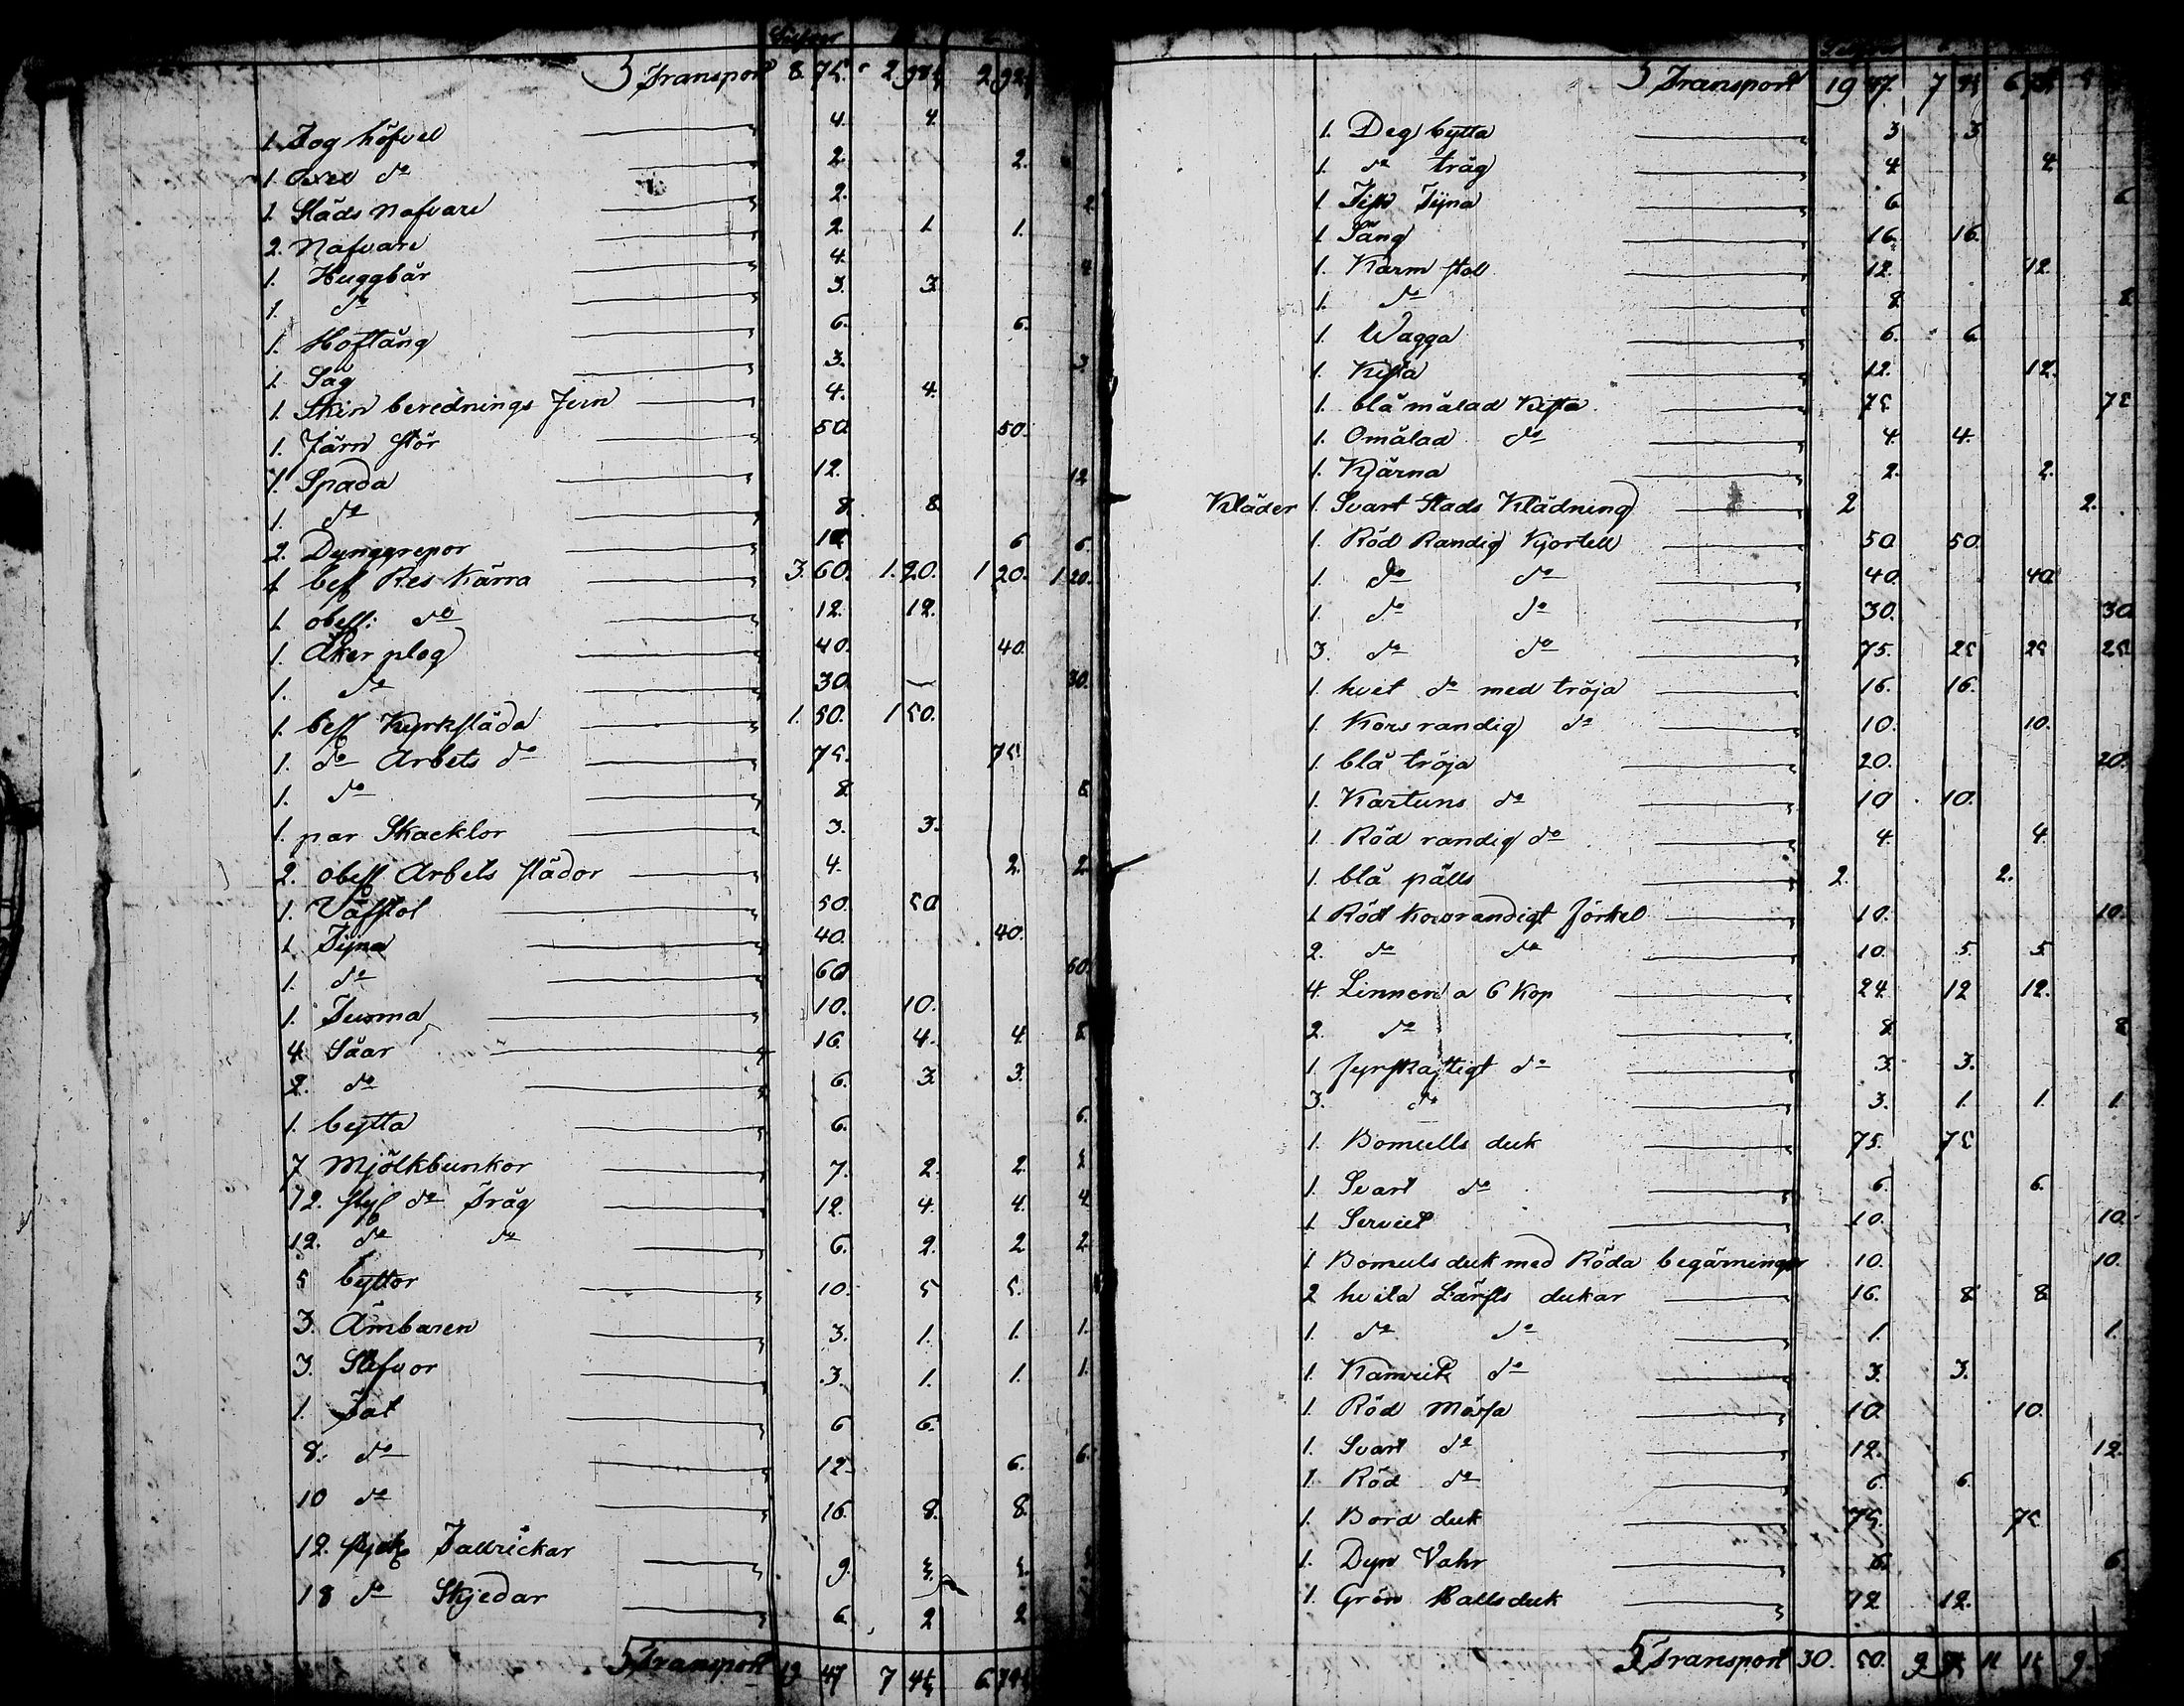 Transport 8. 75. 2. 2.
1. Fog höfvel 4. 4.
1. Oxel do 2. 2.
1. Släds Nafvare 2. 2.
2. Nafvare 2. 1 1.
1. Huggbär 4. 4
1. do 3. 3.
1. Hoftång 6. 6.
1. Såg 3. 3.
1. Skin berednings Jern 4. 4.
1. Järn stör 50. 50.
1. Spada 12. 12
1. do 8. 8.
2. Dynggrepor 12. 6 6.
1. besl Res Kärra 3. 60. 1. 20. 1 20. 1 20.
1. obesl: do 12. 12.
1. Åker plog 40. 40.
1. do 30. 30.
1. besl Kyrksläda 1. 50. 1 50.
1. do Arbets do 75. 75.
1. do 8. 8.
1. par Skacklor 3. 3.
2. obesl Arbets slädor 4. 2. 2.
1. Väfstol 50. 50
1. Tyna 40. 40.
1. do 60 60.
1. Tunna 10. 10.
4. Såar 16. 4. 4. 8.
2. do 6. 3. 3.
1. bytta 6. 6.
7 Mjölkbunkor 7. 2. 2. 3.
12. sty do Tråg 12. 4. 4. 4.
12. do do 6. 2. 2 2.
5 byttor 10. 5 5.
3. Ämbaren 3. 1. 1. 1.
3. Stefvor 3. 1. 1. 1.
1. Fat 6 6.
8. do 12. 6. 6.
10 do 16. 8. 8.
12. styck Tallrickar 9. 3. 3.
18 do Skjedar 6. 2 2
Transport 19 47 7 45 6.
Transport 19 47. 7 45 6
1. Deg bytta 3 3.
1. do tråg 4. 4
1 Fisk Tyna 6 6
1 Säng 16. 16.
1. Karm stoll 12. 12.
1. do 8. 8.
1. Wagga 6. 6.
1. Kista 12. 12.
1. blå målad Kista 75. 75
1. Omålad do 4. 4.
1. Kjärna 2. 2.
Kläder 1. Svart Stads Klädning 2 2.
1. Röd Randig Kjortell 50 50.
1. do do 40. 40
1. do do 30. 30
3. do do 75. 25 25 25
1. hvit do med tröja 16. 16.
1. Korsrandig do 10. 10.
1. blå tröja 20. 20.
1. Kartuns do 10 10.
1. Röd randig do 4. 4.
1. blå pälls 2. 2.
1. Rödt Korsrandigt förkel 10. 10.
2. do do 10. 5. 5
4. Linnen a 6 Kop 24. 12 12.
2. do 8. 8
1. fyrskaftigt do 3. 3.
3. do 3. 1. 1. 1.
1. Bomulls duk 75. 75
1. Svart do 6. 6.
1 Serviet 10. 10.
1 Bomuls duk med Röda begärningar 10. 10.
2 hvita Lärfts dukar 16. 8 8
1. do do 1. 1.
1. Kamrick do 3. 3.
1. Röd Mössa 10. 10.
1. Svart do 12. 12.
1. Röd do 6. 6.
1. Bord duk 75. 75
1. Dyn Vahr 6. 6.
1. Grön Hallsduk 12 12.
Transport 30. 50. 9. 11 9.